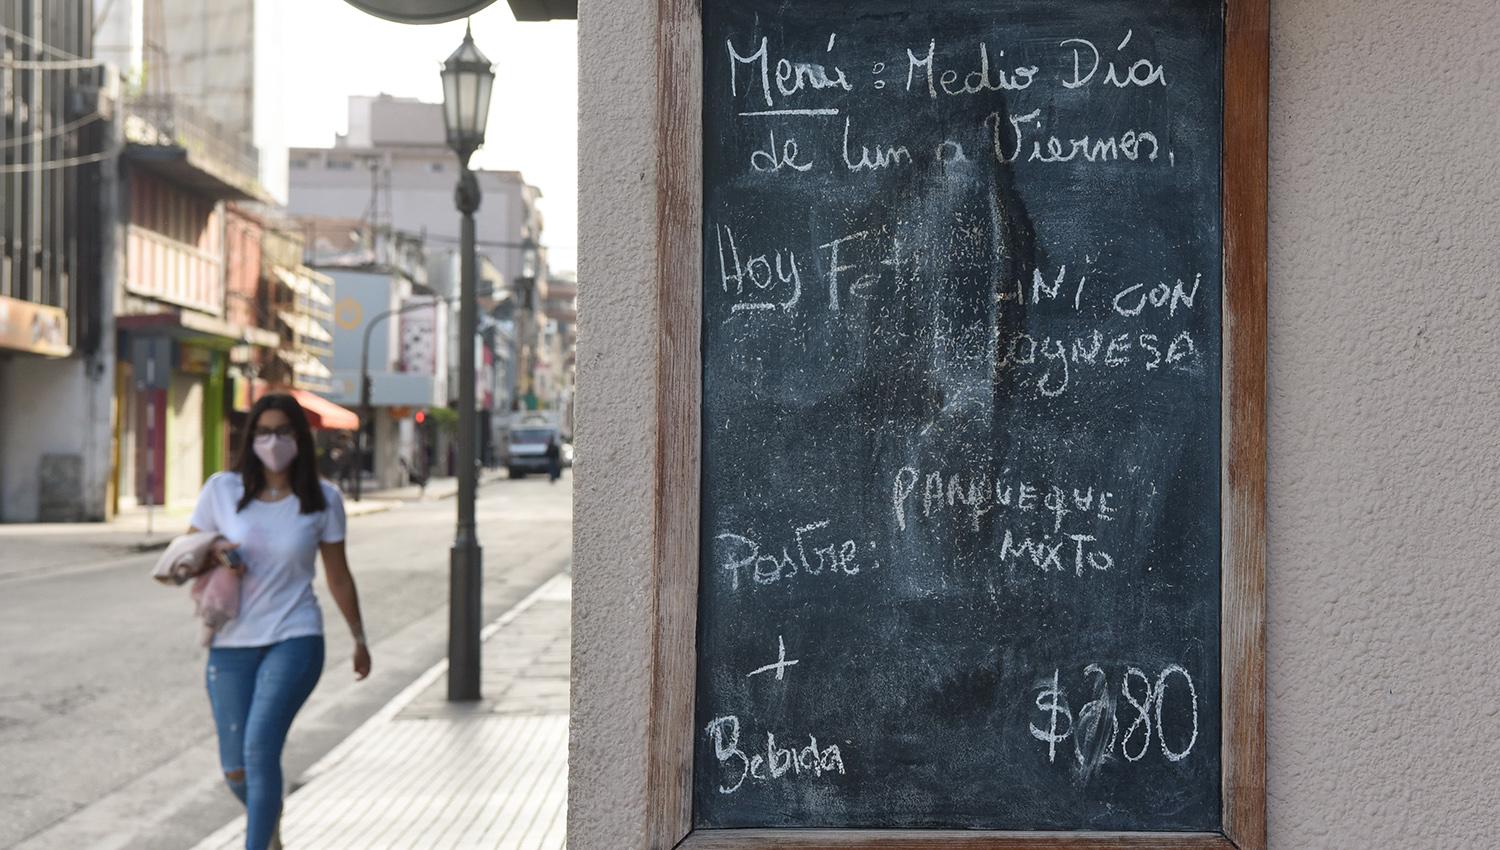 Menú : Medio Día
de lun a Viernes.
Hoy CON
Postre: PANQUEQUE
MIXTO
+
Bebida